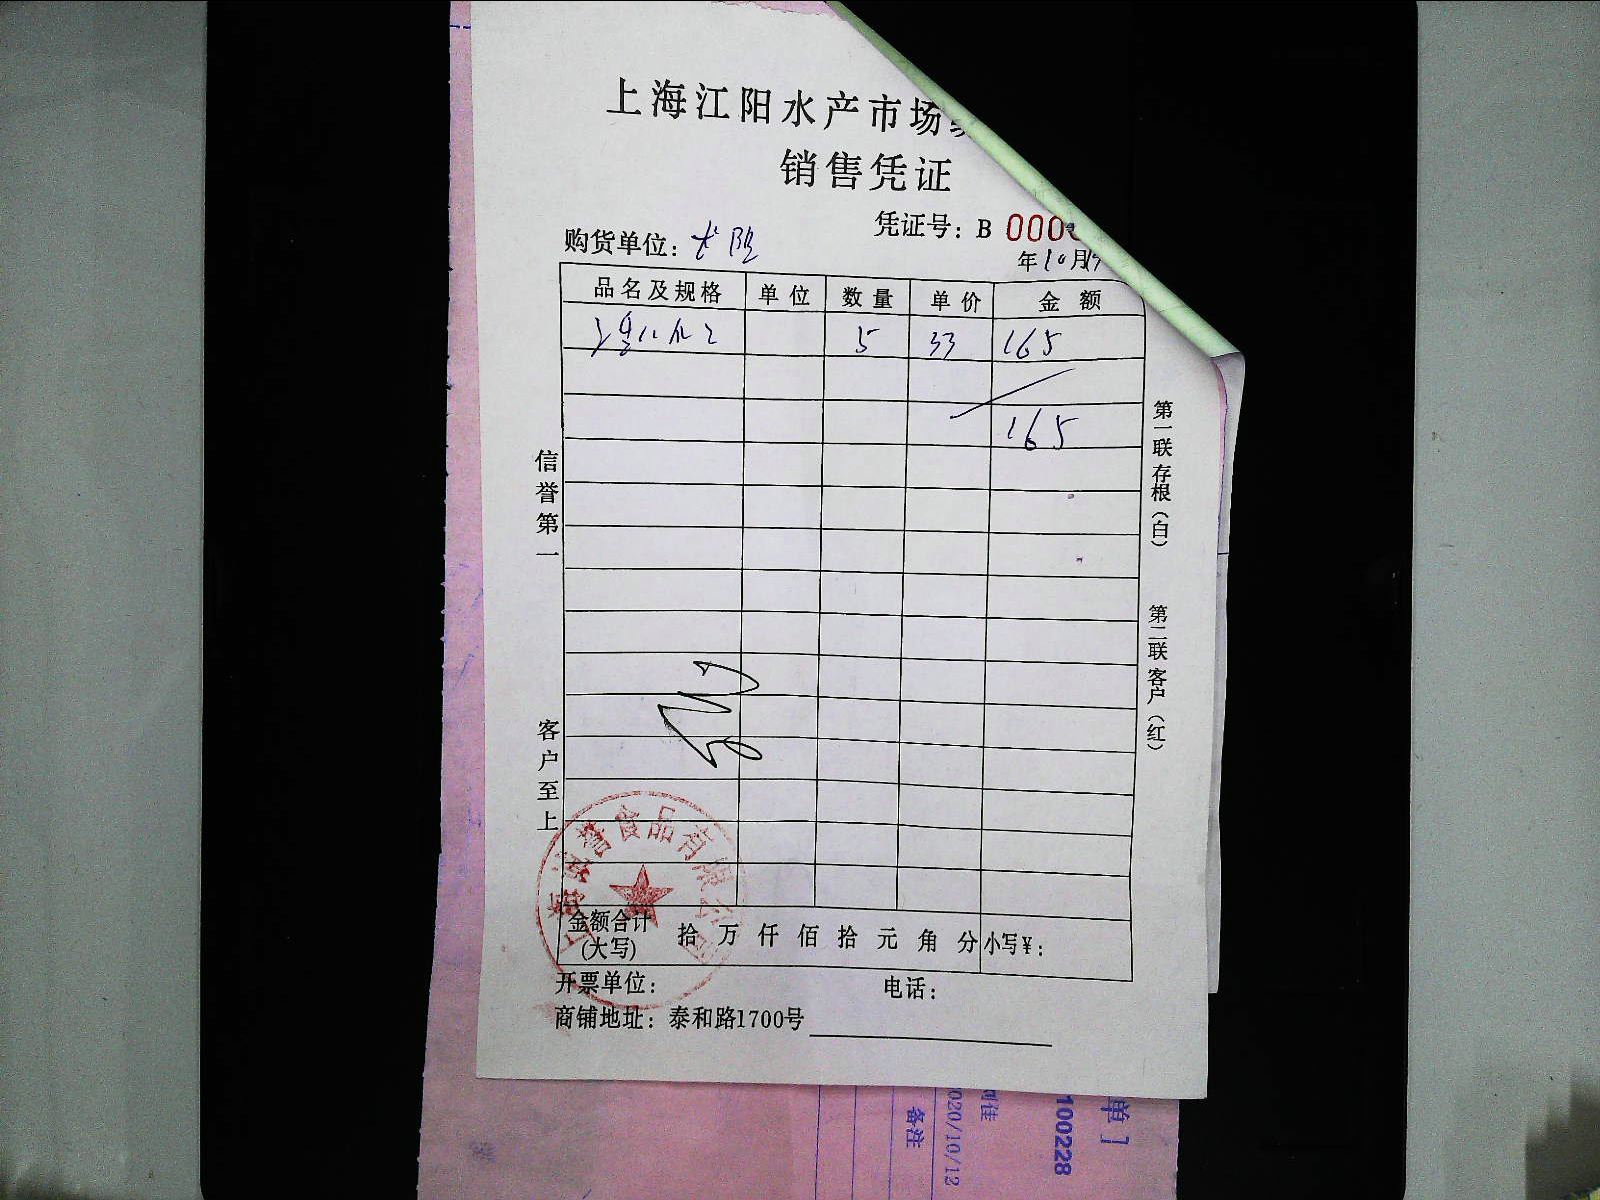 上海江阳水产市场
销售凭证
凭证号：B 000
购货单位：
年10月
品名及规格 单位 数量 单价 金额
5 33 165
165
信誉第一
客户至上
第一联存根（白）
第二联客户（红）
食品有限
金额合计(大写) 拾 万 仟 佰 拾 元 角 分 小写¥：
开票单位： 电话：
商铺地址：泰和路1700号
单]
100228
020/10/12
备注